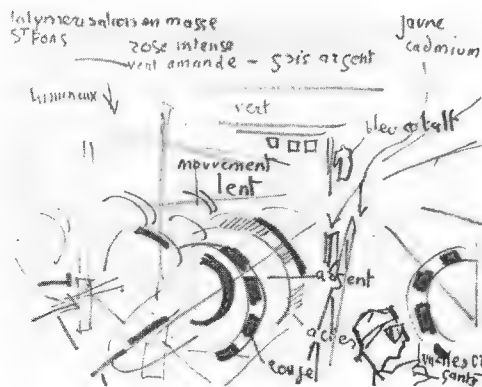 Polymerisation en masse
ST FONS
rose intense
vert amande - gris argent
jaune
cadmium
lumineux
vert
bleu cobalt
mouvement
lent
argent
acier
rouge